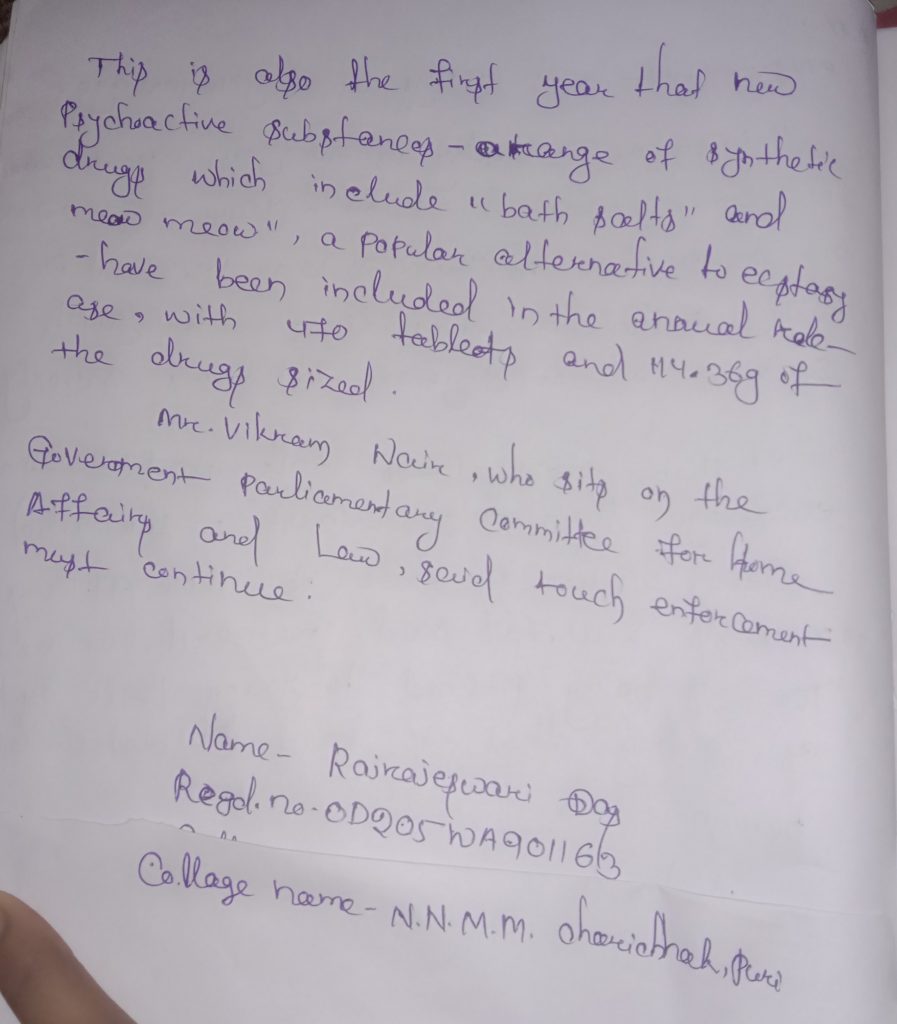 This is also the first year that new
Psychoactive Substances - a range of synthetic
drugs which include "bath salts" and
meow meow", a popular alternative to ecstasy
- have been included in the annual rele-
ase, with 470 tableots and 114.36g of
the drugs sized.
Mr. Vikram Nair, who sits on the
Goverment Parliamentary Committee for Home
Affairs and Law, said touch enforcement
must continue.
Name - Rajrajeswari Das
Regd. no - OD205WA901163
Collage name - N.N.M.M. charichhak, Puri